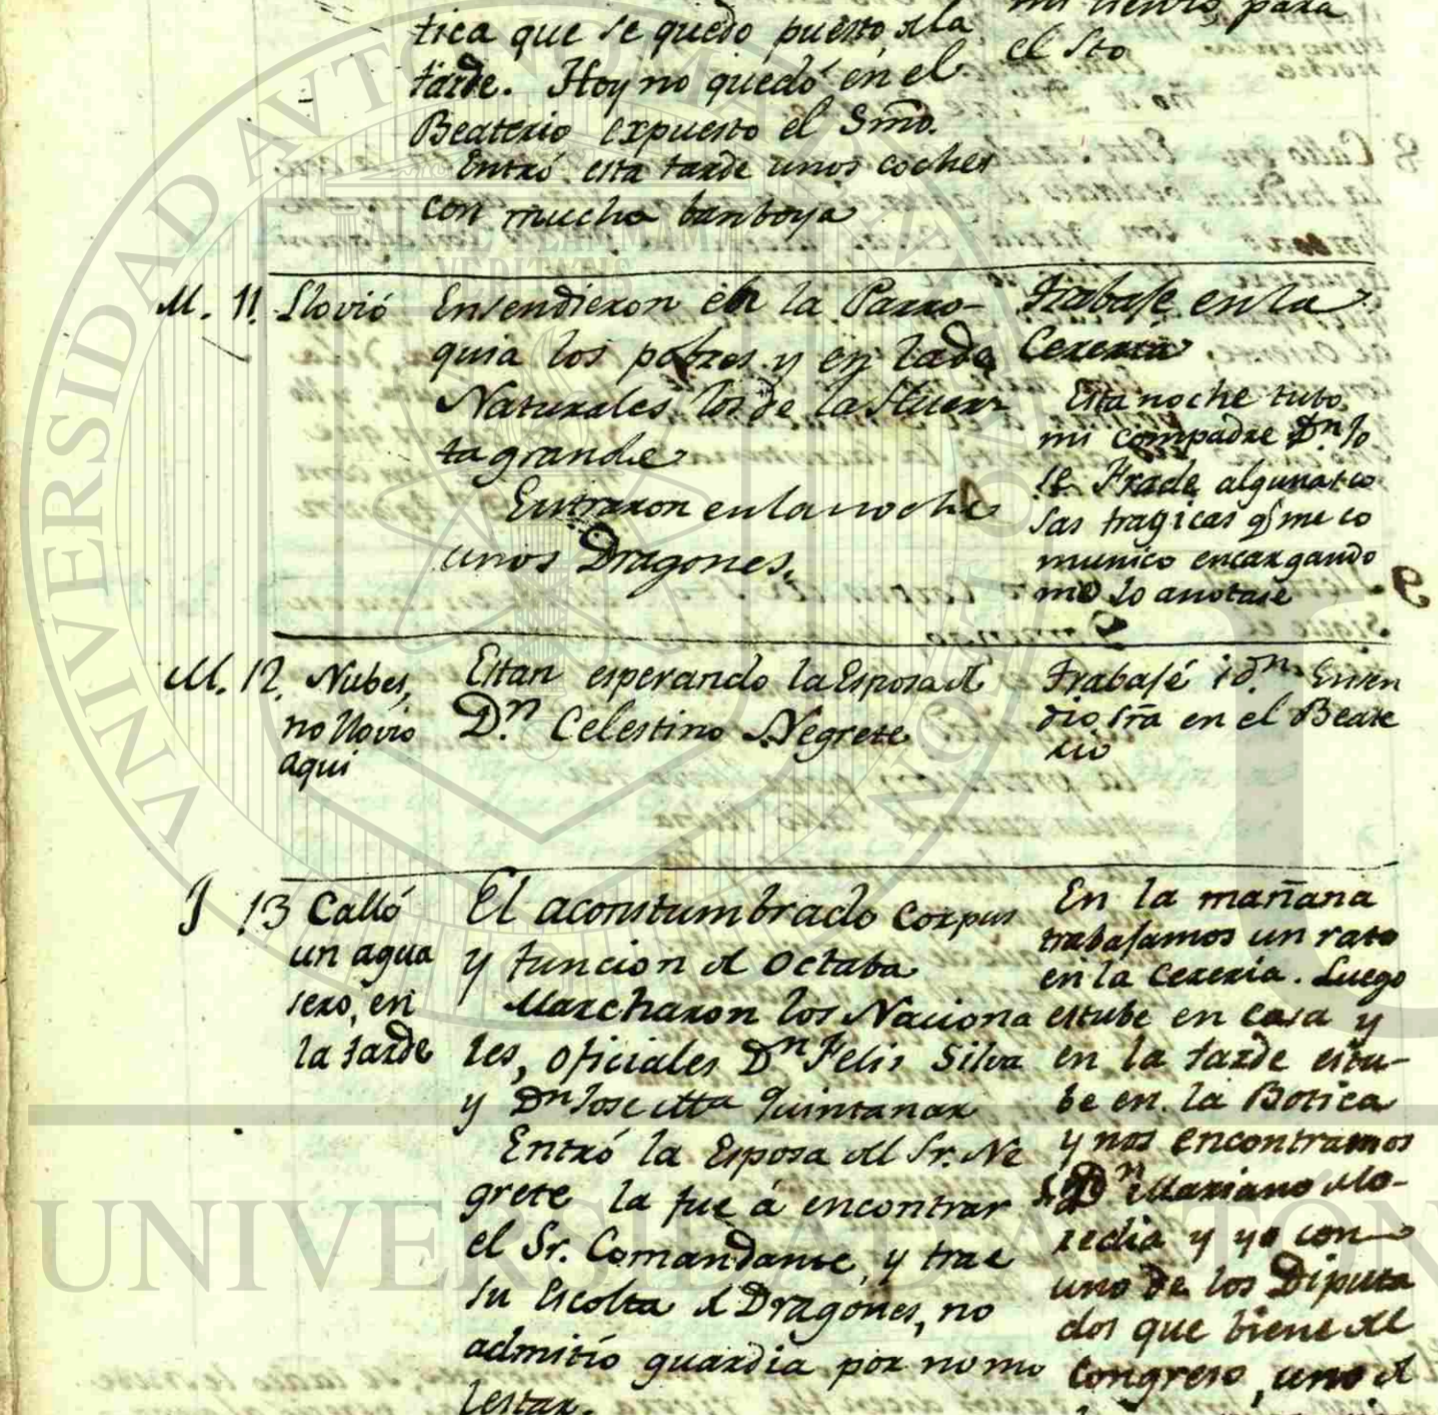 tica que se quedo puesto, dla
tarde. Hoy no quedó en el
Beaterio expuesto el Smo.
Entró esta tarde unos coches
con mucha bamboya
el Sto
M. 11. Llovió
Ensendieron en la Parro-
quia los pobres y en lade
Naturales los de la Huer-
ta grande
Entraron en la noche
unos Dragones.
Trabaje en la
Cereria
Esta noche tubo
mi compadre Dn Jo
se Frade algunas co
sas tragicas q me co
munico encargando
me lo anotase
M. 12. Nubes,
no llovio
aqui
Estan esperando la Esposa d
Dn. Celestino Negrete
Trabajé idn. Ensen
dio sra en el Beate
rio
J 13 Calló
un agua
sero, en
la tarde
El acostumbrado Corpus
y funcion d Octaba
Marcharon los Naciona
les, oficiales Dn Felis Silva
y Dn Jose Ma Quintanar
Entró la Esposa dl Sr. Ne
grete la fue á encontrar
el Sr. Comandante, y trae
su Escolta d Dragones, no
admitió guardia por no mo
lestar.
En la mañana
trabajamos un rato
en la Cereria. Luego
estube en casa y
en la tarde estu-
be en la Botica
y nos encontramos
Dn Mariano
y yo con
uno de los Diputa
dos que biene dl
Congreso, uno d
VERITATIS
UNIVERSIDAD AUTÓNOMA
UNIVERSIDAD AUTÓN